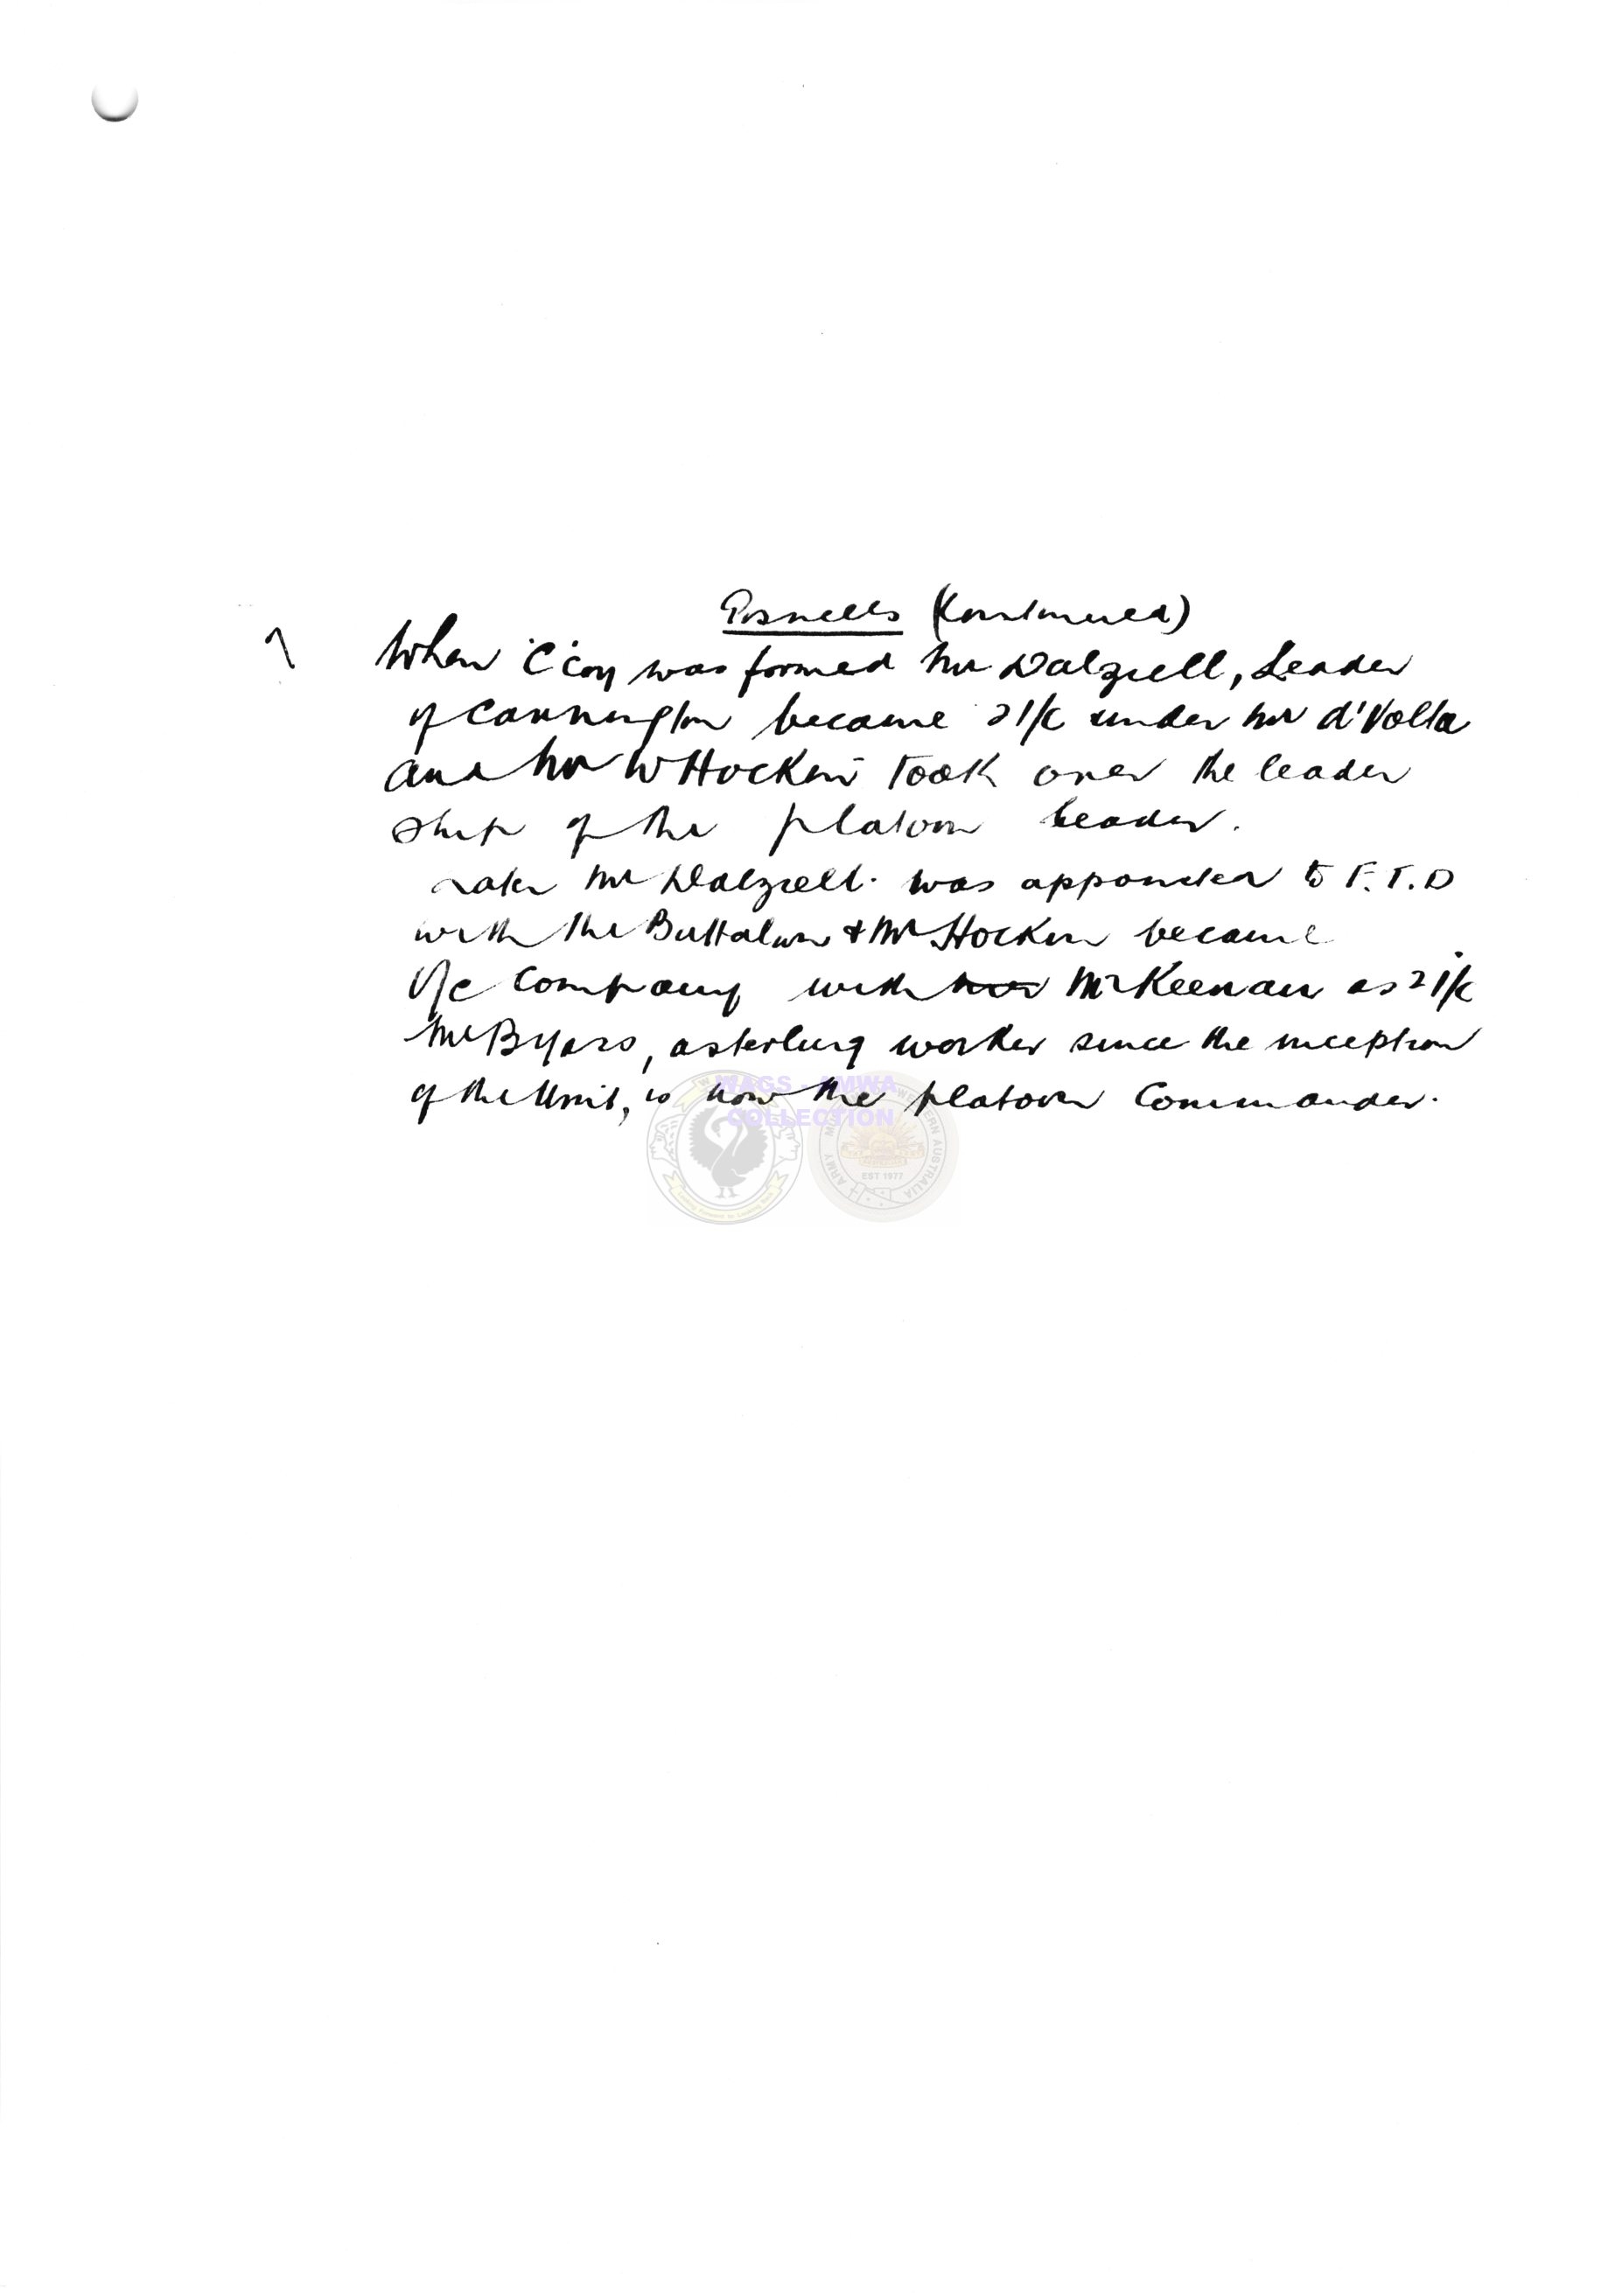 Gosnells (Continued)
7 When 'C' Coy was formed Mr Dalziell, Leader
of Cannington became 2 I/C under Mr d'Volta
and Mr W Hocken took over the leader
ship of the platoon leader.
Later Mr Dalziell. was appointed to F.T.D
with the Battalion & Mr Hocken became
O/C Company with Mr Keenan as 2 I/C
Mr Byars, a sterling worker since the inception
of the Unit, is now the platoon Commander.
WAGS - AMWA
COLLECTION
WESTERN AUSTRALIA
ARMY
EST 1977